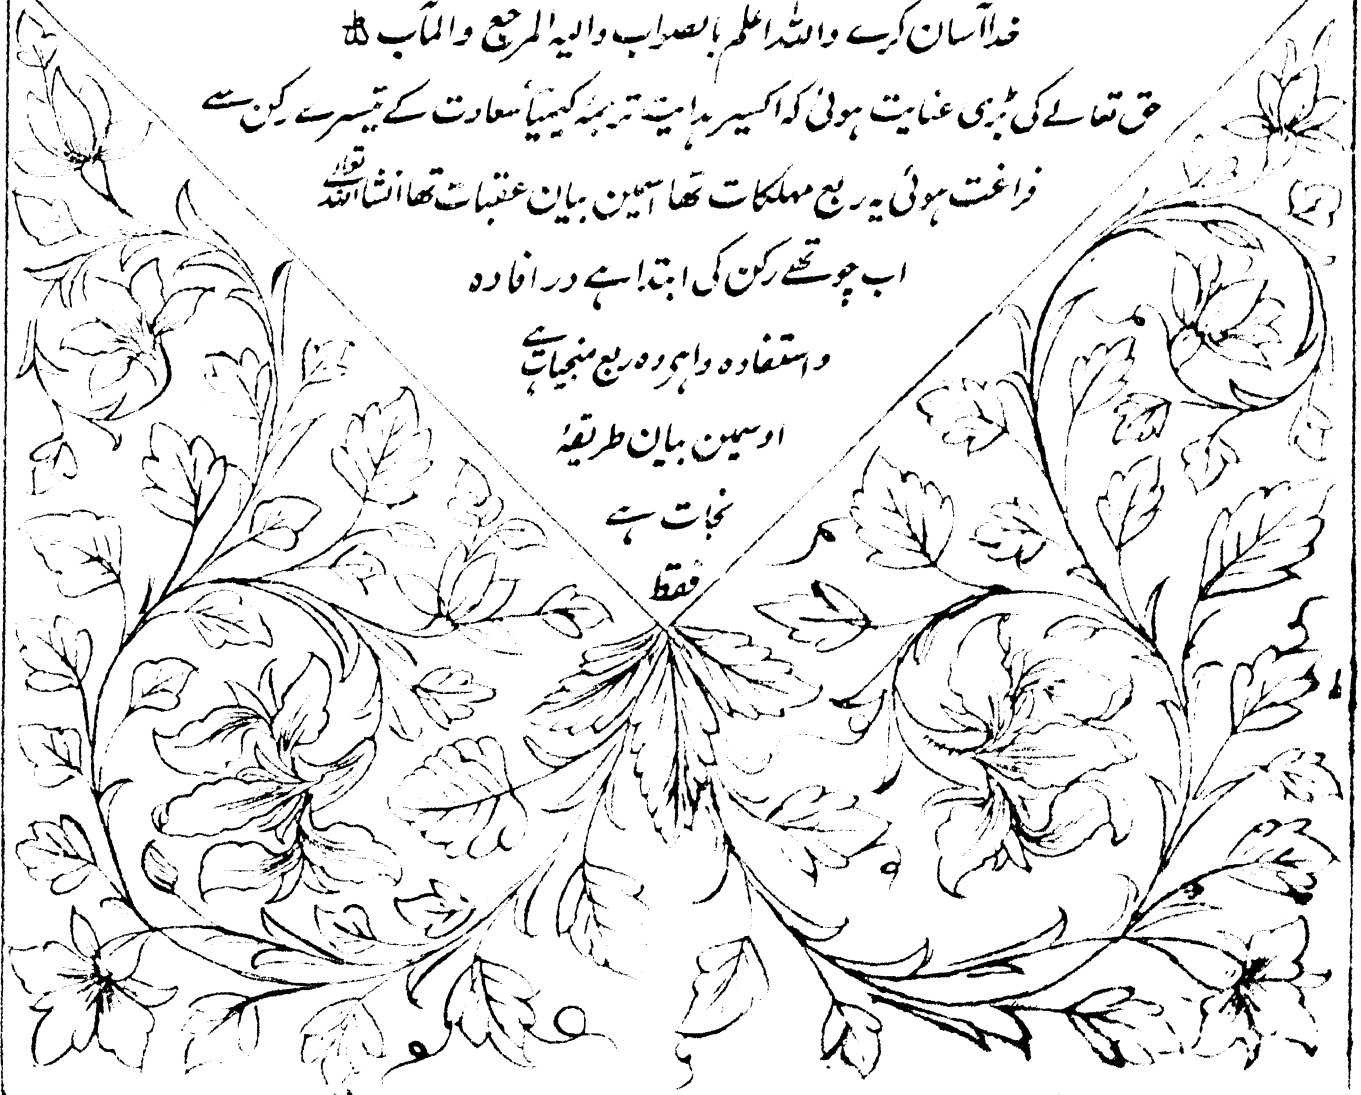 خدا آسان کرے واللہ اعلم بالصواب والیہ المرجع والمآب
حق تعالے کی بڑی عنایت ہوئی کہ اکسیر ہدایت ترجمۂ کیمیاۓ سعادت کے تیسرے رکن سے
فراغت ہوئی یہ ربع مہلکات تھا اسمین بیان عقبات تھا انشاء اللہ تعالے
اب چوتھے رکن کی ابتدا ہے در افادہ
و استفادہ وا ہو وہ ربع منجیات ہے
اوسمین بیان طریقۂ
نجات ہے
فقط